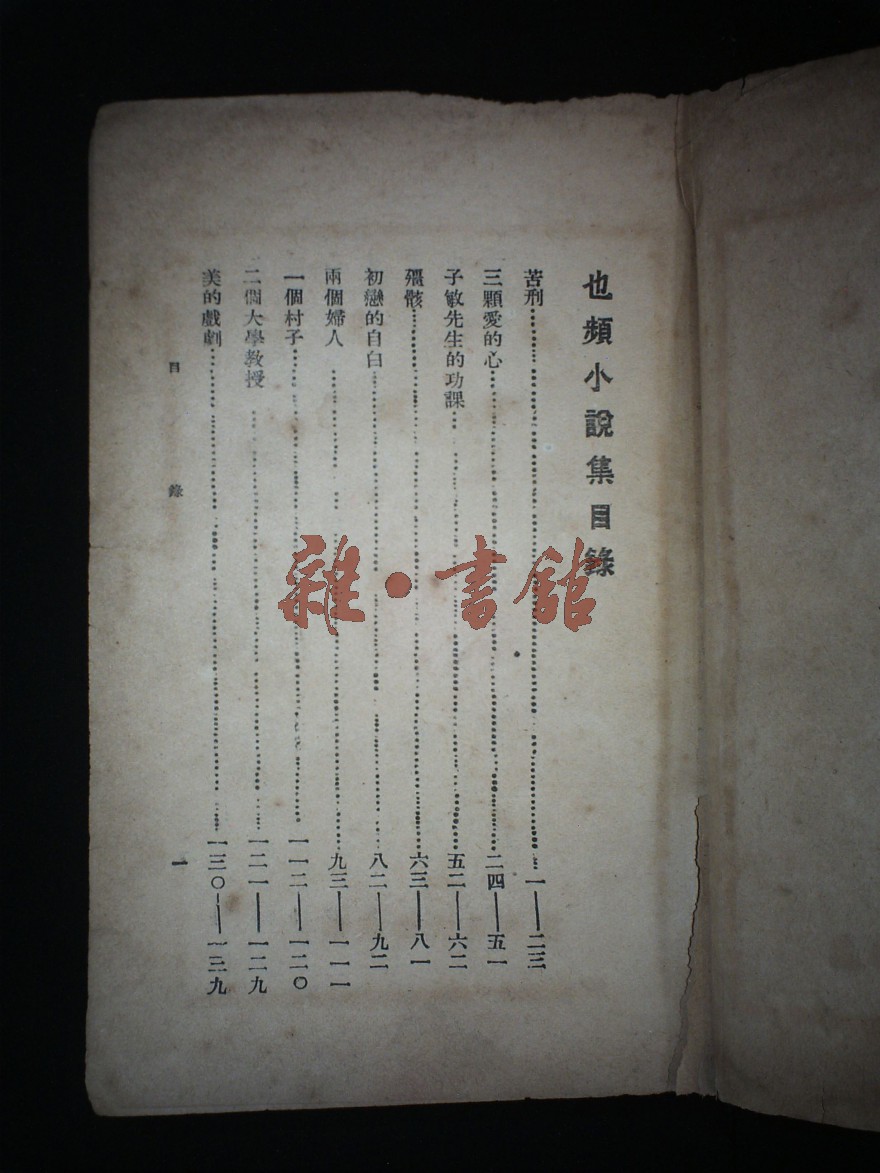 也頻小說集目錄
苦刑……一——二三
三顆愛的心……二四——五一
子敏先生的功課……五二——六二
殭骸……六三——八一
初戀的自白……八二——九二
兩個婦人……九三——一一一
一個村子……一一二——一二〇
二個大學教授……一二一——一二九
美的戲劇……一三〇——一三九
目錄
一
雜·書館